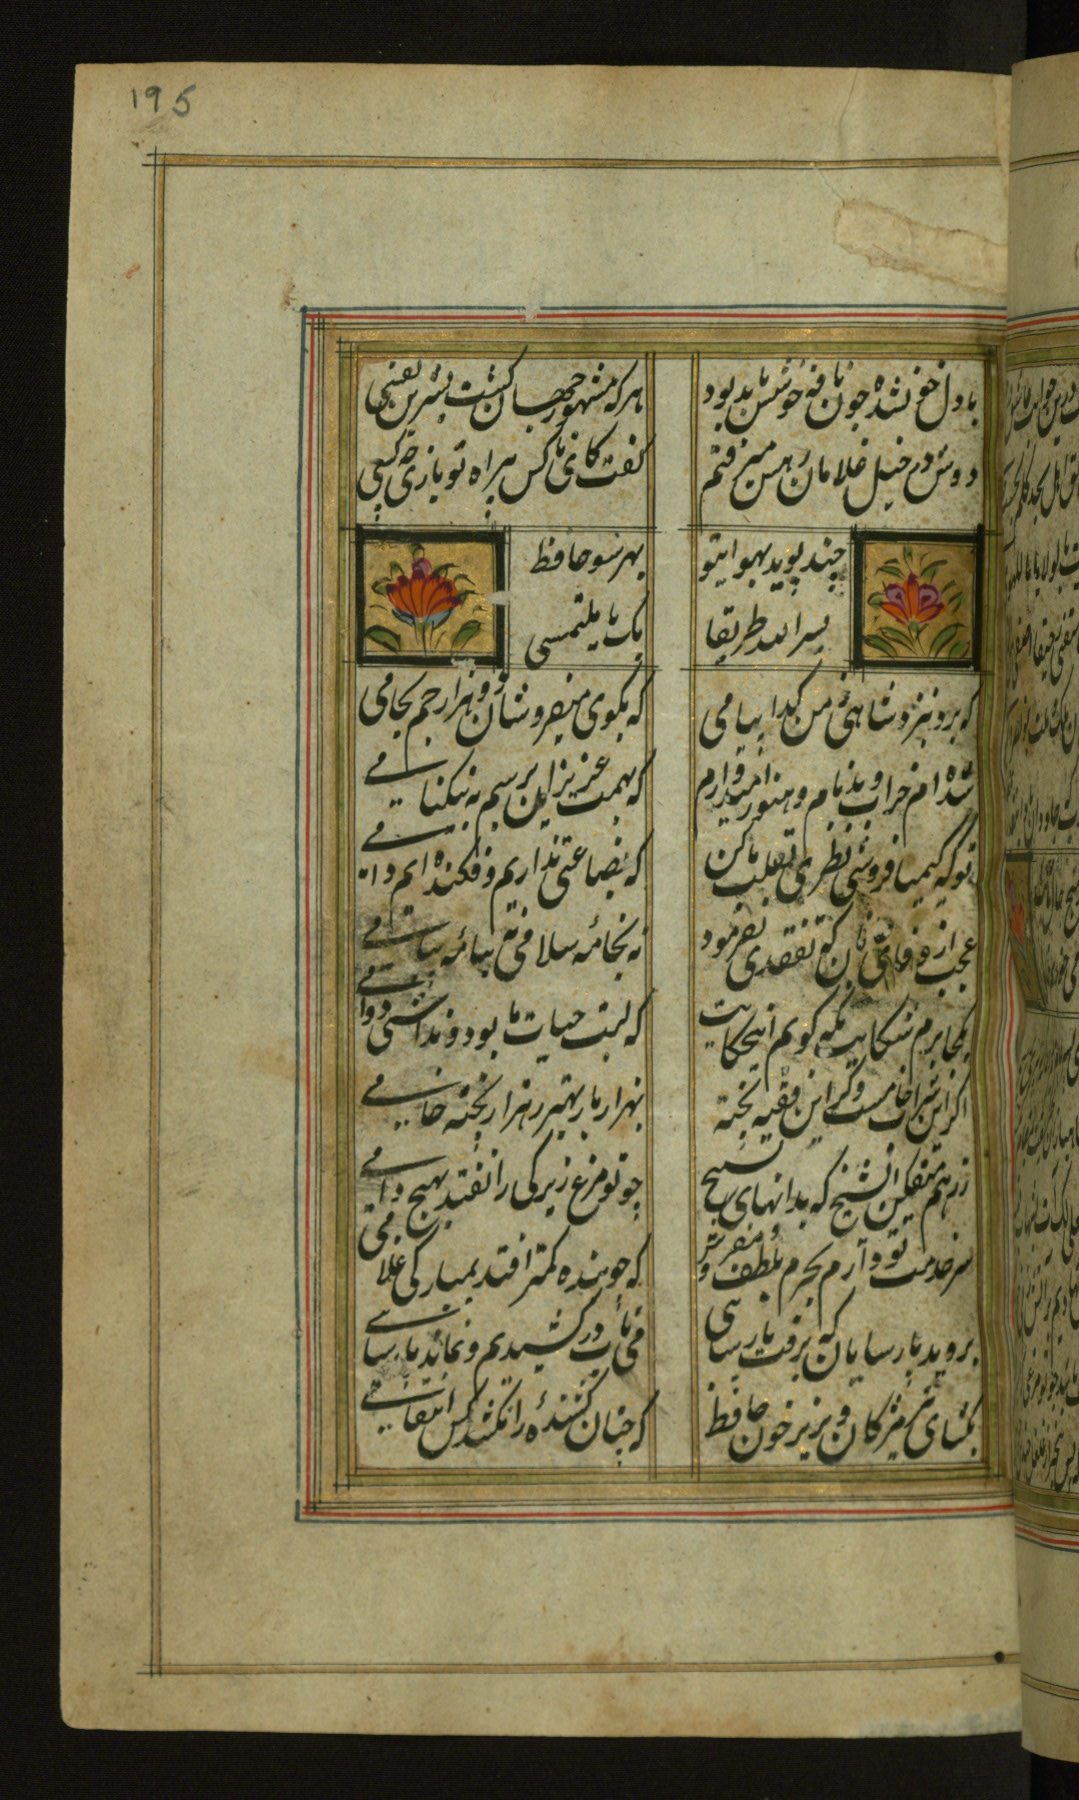 195
با دل خون شده چون نافه خوشش باید بود
هر که مشهور جهان گشت بشیرین نفسی
دوش در خیل غلامان رهش میرفتم
گفت کای ناکس بیراه تو بازی چه کسی
چند پوید بهوای تو
بهر سو حافظ
یسر الله طریقا
بک یا ملتمسی
که برد بنزد شاهان من گدا پیامی
که بکوی میفروشان دو هزار جم بجامی
شده ام خراب و بدنام و هنوز امیدوارم
که بهمت عزیزان برسم به نیکنامی
تو که کیمیا فروشی نظری بقلب ما کن
که بضاعتی نداریم و فکنده ایم دامی
عجب از وفای جانان که تفقدی نفرمود
نه بخامه سلامی نه بنامه پیامی
بکجا برم شکایت بکه گویم این حکایت
که لبت حیات ما بود و نداشتی دوامی
اگر این شراب خامست وگر این فقیه پخته
بهزار بار بهتر ز هزار پخته خامی
ز رهم میفکن ای شیخ که بدانهای تسبیح
چو تو مرغ زیرکی را نفتد بهیچ دامی
سر خدمت تو دارم بخرم بلطف و مفروش
که چو بنده کمتر افتد بمبارکی غلامی
بروید پارسایان که برفت پارسایی
می ناب در کشیدیم و نماند پارسایی
بگشای تیر مژگان و بریز خون حافظ
که چنان کشنده را نکشد کس انتقامی